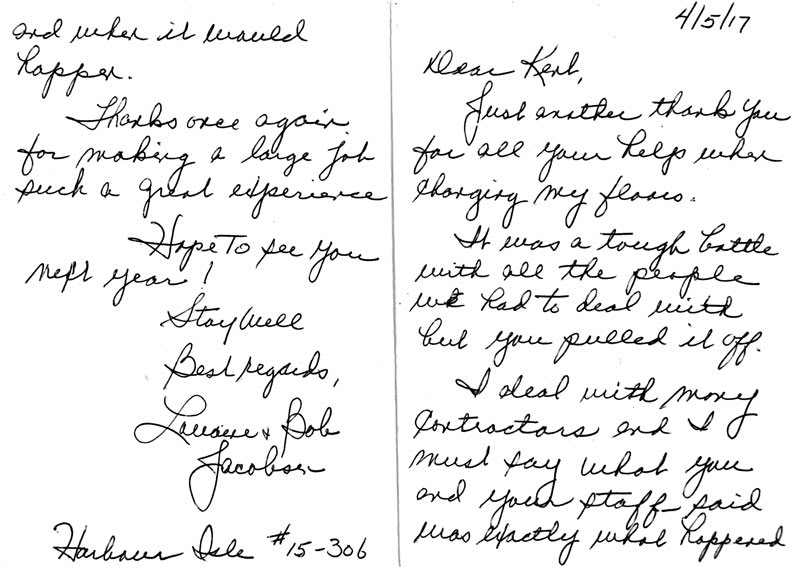 4/5/17
Dear Kent,
Just another thank you
for all your help when
changing my floors.
It was a tough battle
with all the people
we had to deal with
but you pulled it off.
I deal with many
contractors and I
must say what you
and your staff said
was exactly what happened
and when it would
happen.
Thanks once again
for making a large job
such a great experience
Hope to see you
next year!
Stay Well
Best regards,
& Bob
Jacobsen
Harbour Isle #15-306